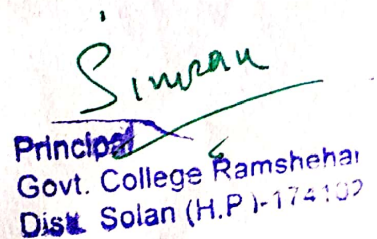 Simran
Principal
Govt. College Ramshehar
Distt. Solan (H.P.)-174102